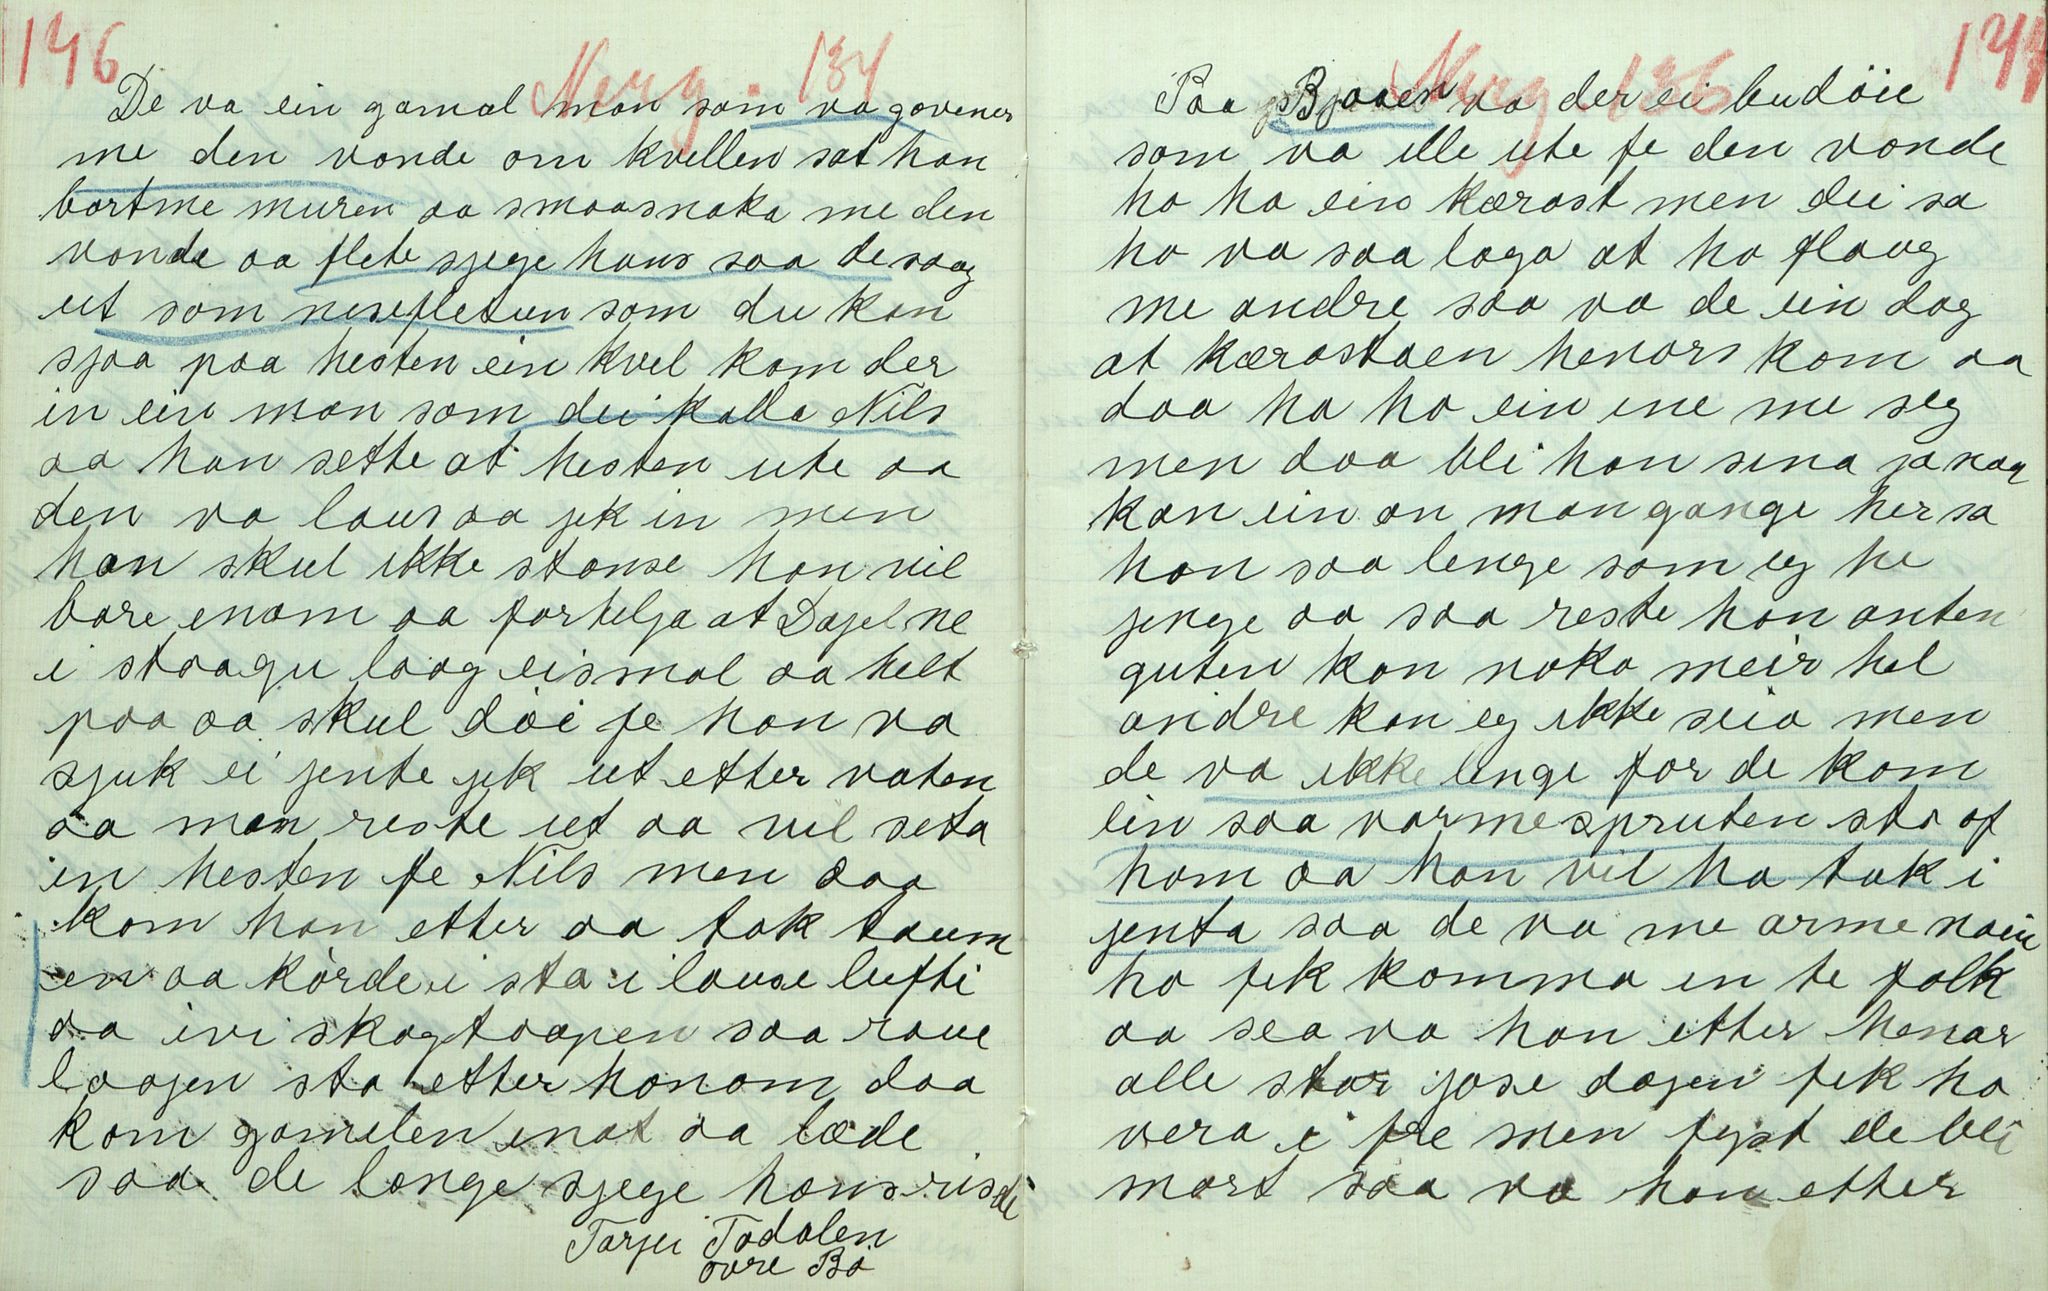 146
Merg. 134
De va ein gamal man som va govener
me den vonde om kvellen sat han
bortme muren aa smaasnaka me den
vonde aa flete sjege hans saa de saag
ut som nisefleteen som du kan
sjaa paa hesten ein kvel kom der
in ein man som dei kalla Nils
aa han sette at hesten ute aa
den va laus aa jek in men
han skul ikke stanse han vil
bare enom aa fortelja at Dajel ne
i staagu laag eismal aa helt
paa aa skul döi fe han va
sjuk ei jente jek ut etter vaten
aa man reste ut aa vil seta
in hesten fe Nils men daa
kom han etter aa tok taum
en aa körde i sta i lause lufti
aa ivi skogtaapen saa raue
laajen sto etter honom daa
kom gamelen inat aa læde
saa de lange sjege hans risdi
Tarjei Todalen
övre Bö
147
Merg 136
Paa Bjaaen va der ei budöie
som va ille ute fe den vonde
ho ha ein kærast men dei sa
ho va saa laga at ho flaug
me andre saa va de ein dag
at kærastaen henars kom aa
daa ha ho ein ine me seg
men daa blei han sina ja naar
kan ein an man gange her sa
han saa lenge som eg he
jenge aa saa reste han anten
guten kan noko meir hel
andre kan eg ikke seia men
de va ikke lenge for de kom
ein saa varmespruten sto af
hom aa han vil ha tak i
jenta saa de va me arme naue
ho fek komma in te folk
aa sea va han etter henar
alle star jose dagen fek ho
vera i fre men fyst de blei
mört saa va han etter